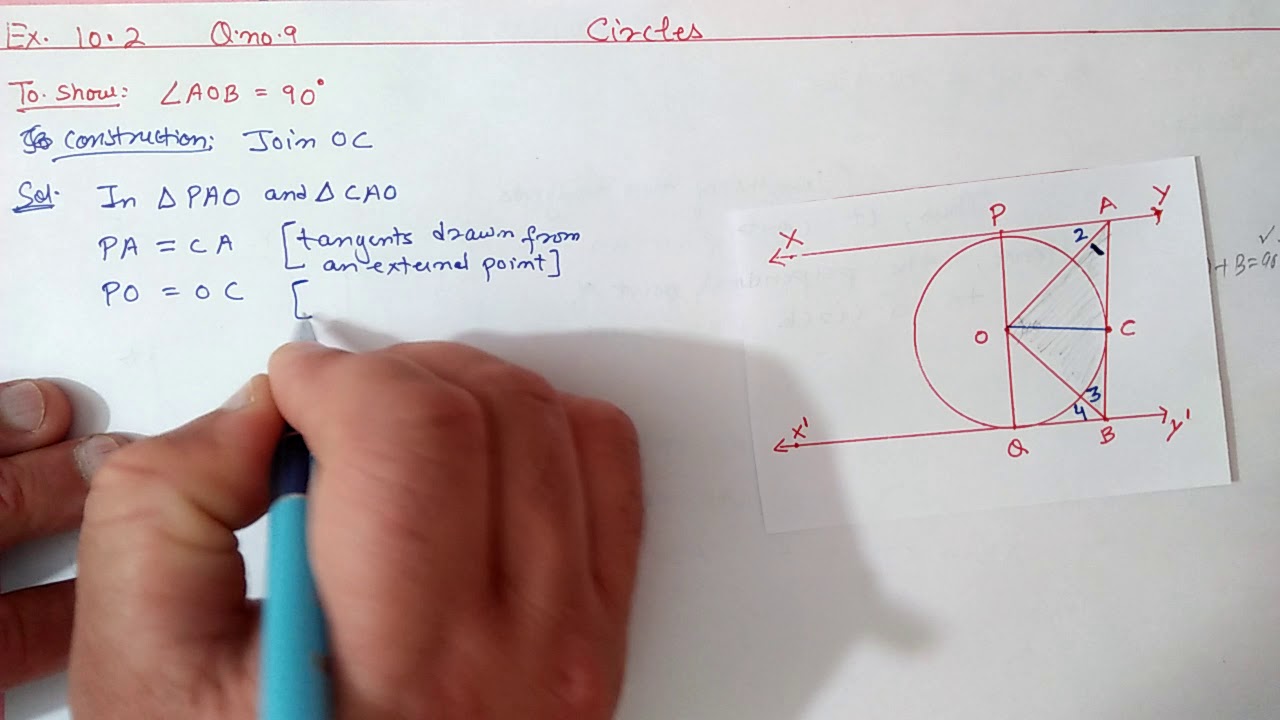 Ex. 10.2 Q.no.9 Circles
To show: ∠AOB = 90°
Construction: Join OC
Sol. In △PAO and △CAO
PA = CA [tangents drawn from
an external point]
PO = OC [
P A Y
X 2
+ B = 90
O C
3
4
X' Q B Y'